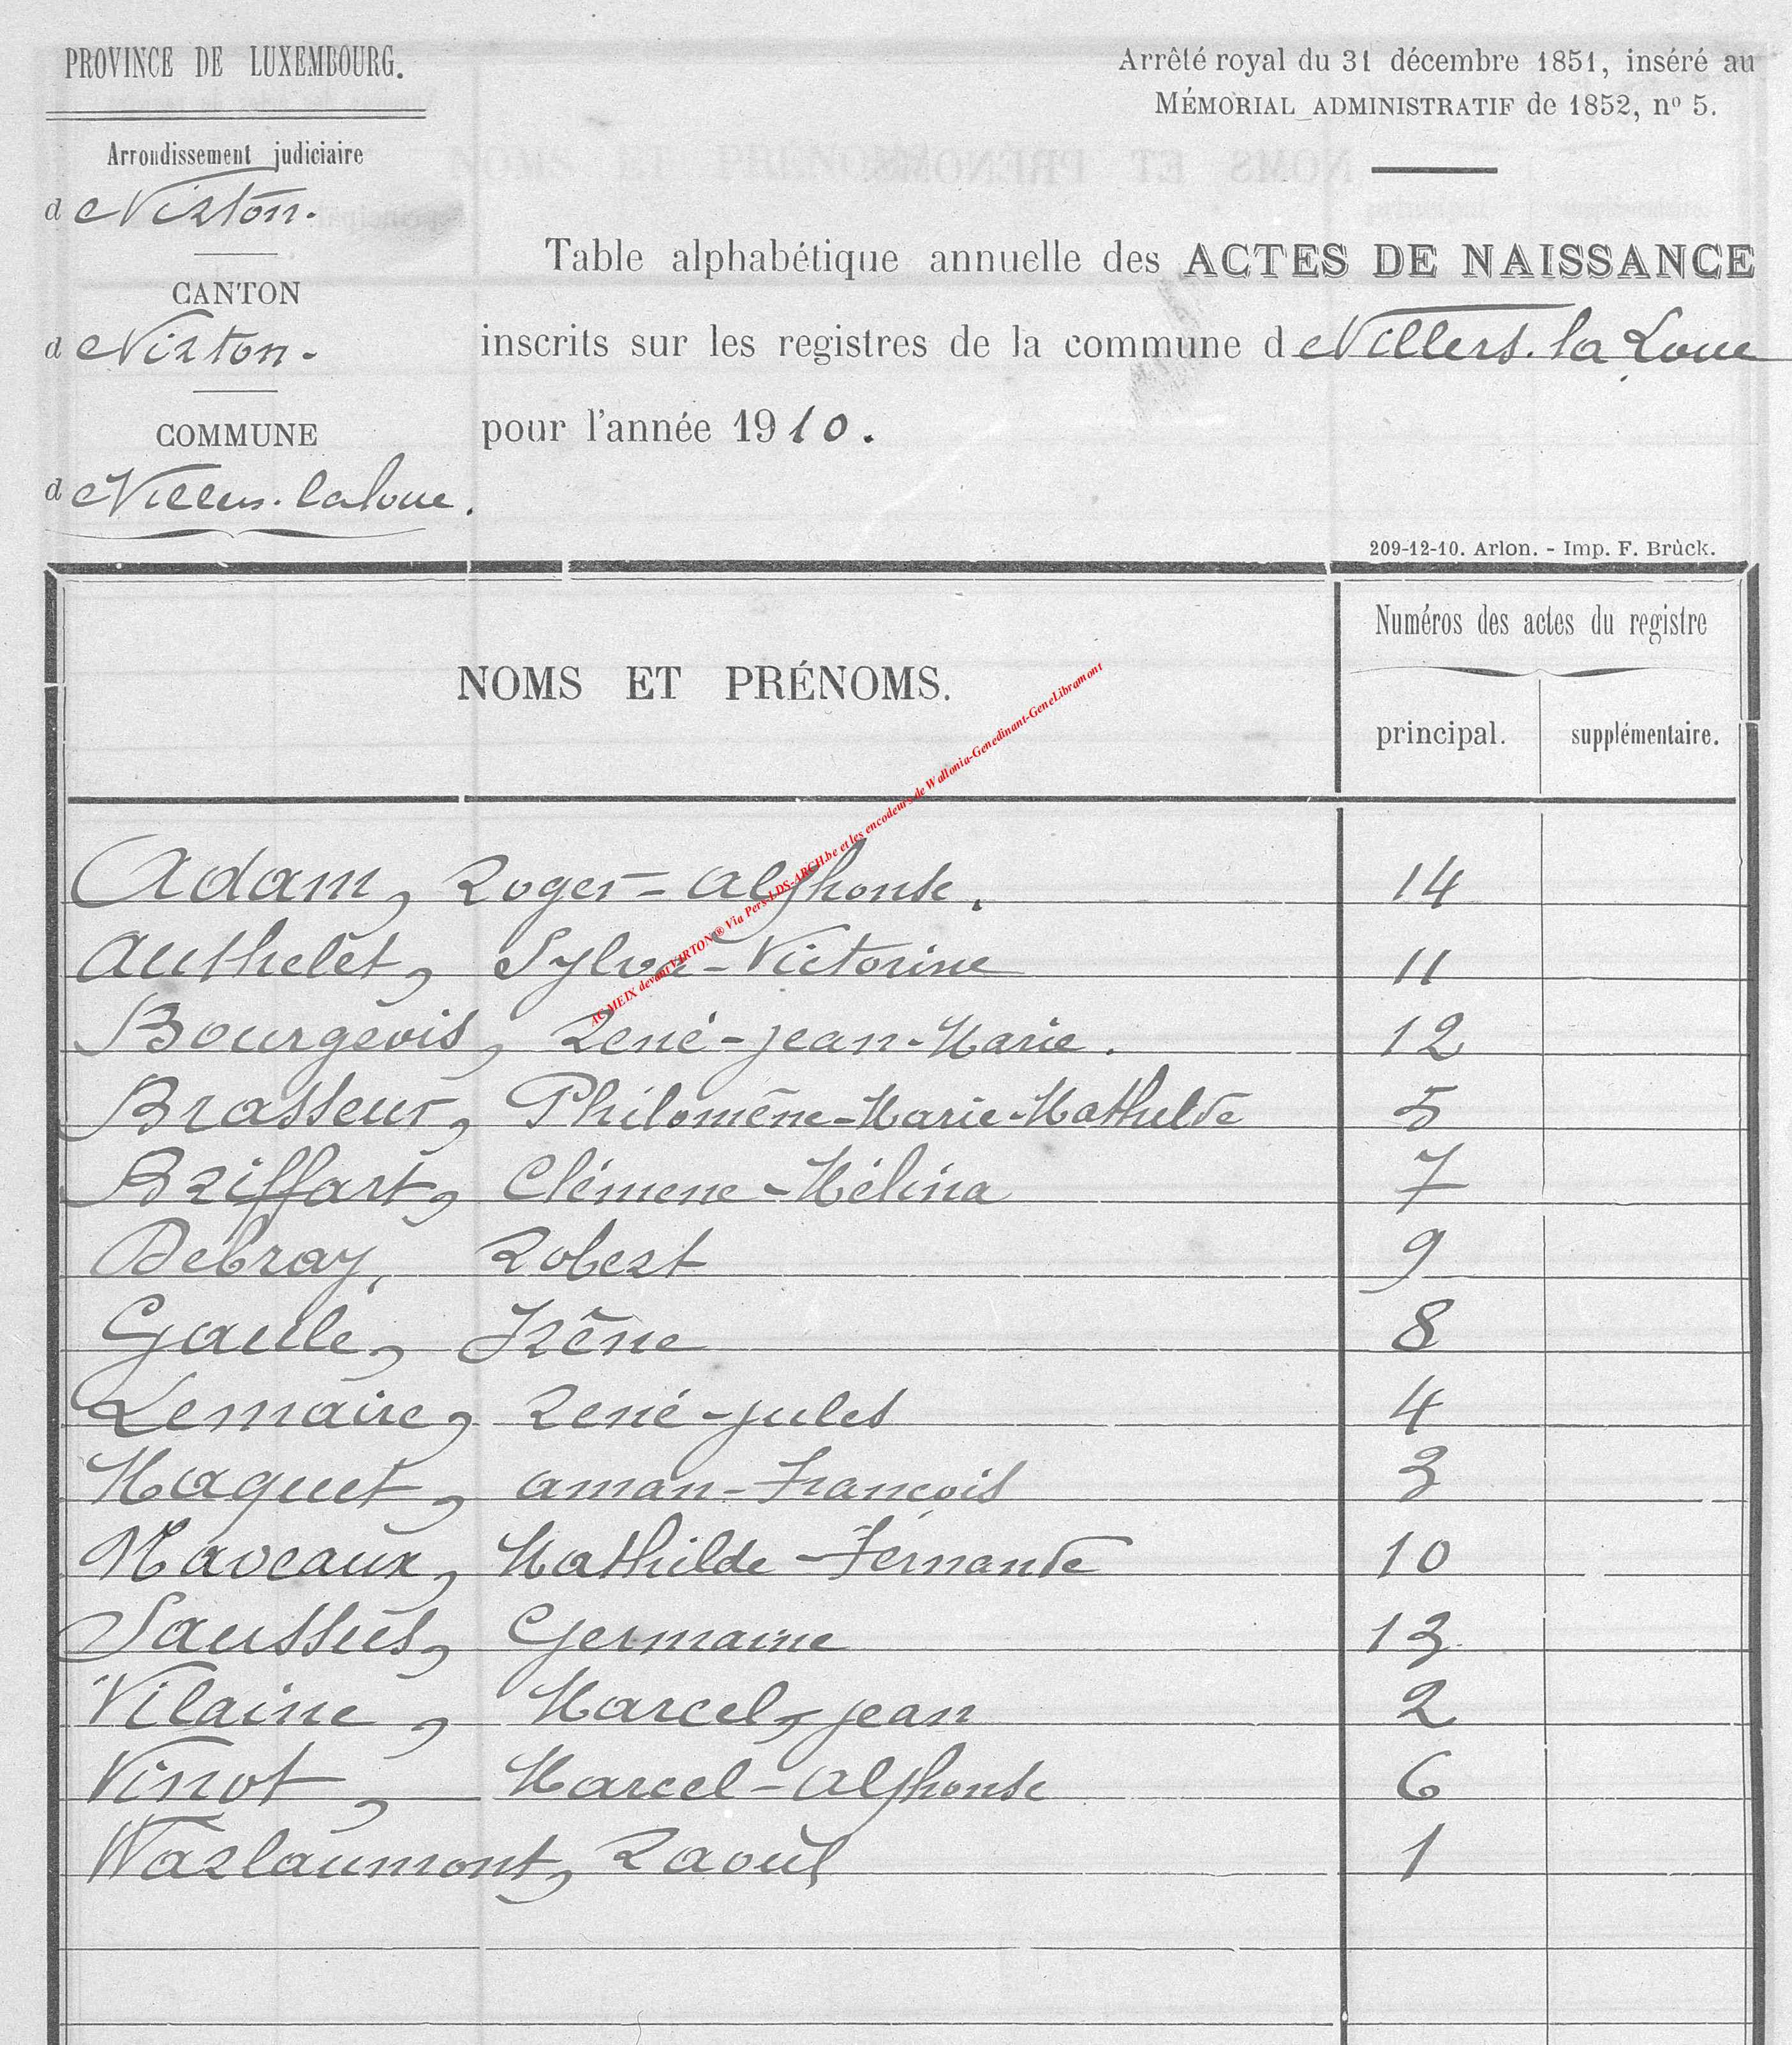 PROVINCE DE LUXEMBOURG.
Arrêté royal du 31 décembre 1851, inséré au
MÉMORIAL ADMINISTRATIF de 1852, nº 5.
Arrondissement judiciaire
d Virton.
CANTON
d Virton.
COMMUNE
d Villers-la loue.
Table alphabétique annuelle des ACTES DE NAISSANCE
inscrits sur les registres de la commune d Villers-la Loue
pour l'année 1910.
209-12-10. Arlon. - Imp. F. Brück.
NOMS ET PRÉNOMS.
Numéros des actes du registre
principal. supplémentaire.
AC MEIX devant VIRTON ® Via Pers-LDS-ARCH.be et les encodeurs de Wallonia-Genedinant-GeneLibramont
Adam, Roger-Alphonse. 14
Authelet, Sylva-Victorine 11
Bourgeois, René-Jean-Marie. 12
Brasseur, Philomène-Marie-Mathilde 5
Briffart, Clémene-Mélina 7
Debray, Robert 9
Gaulé, Irène 8
Lemaire, René-Jules 4
Maquet, Aman-François 3
Maveaux, Mathilde-Fernande 10
Saussus, Germaine 13
Vilaine, Marcel, Jean 2
Vinot, Marcel-Alphonse 6
Warlaumont, Raoul 1